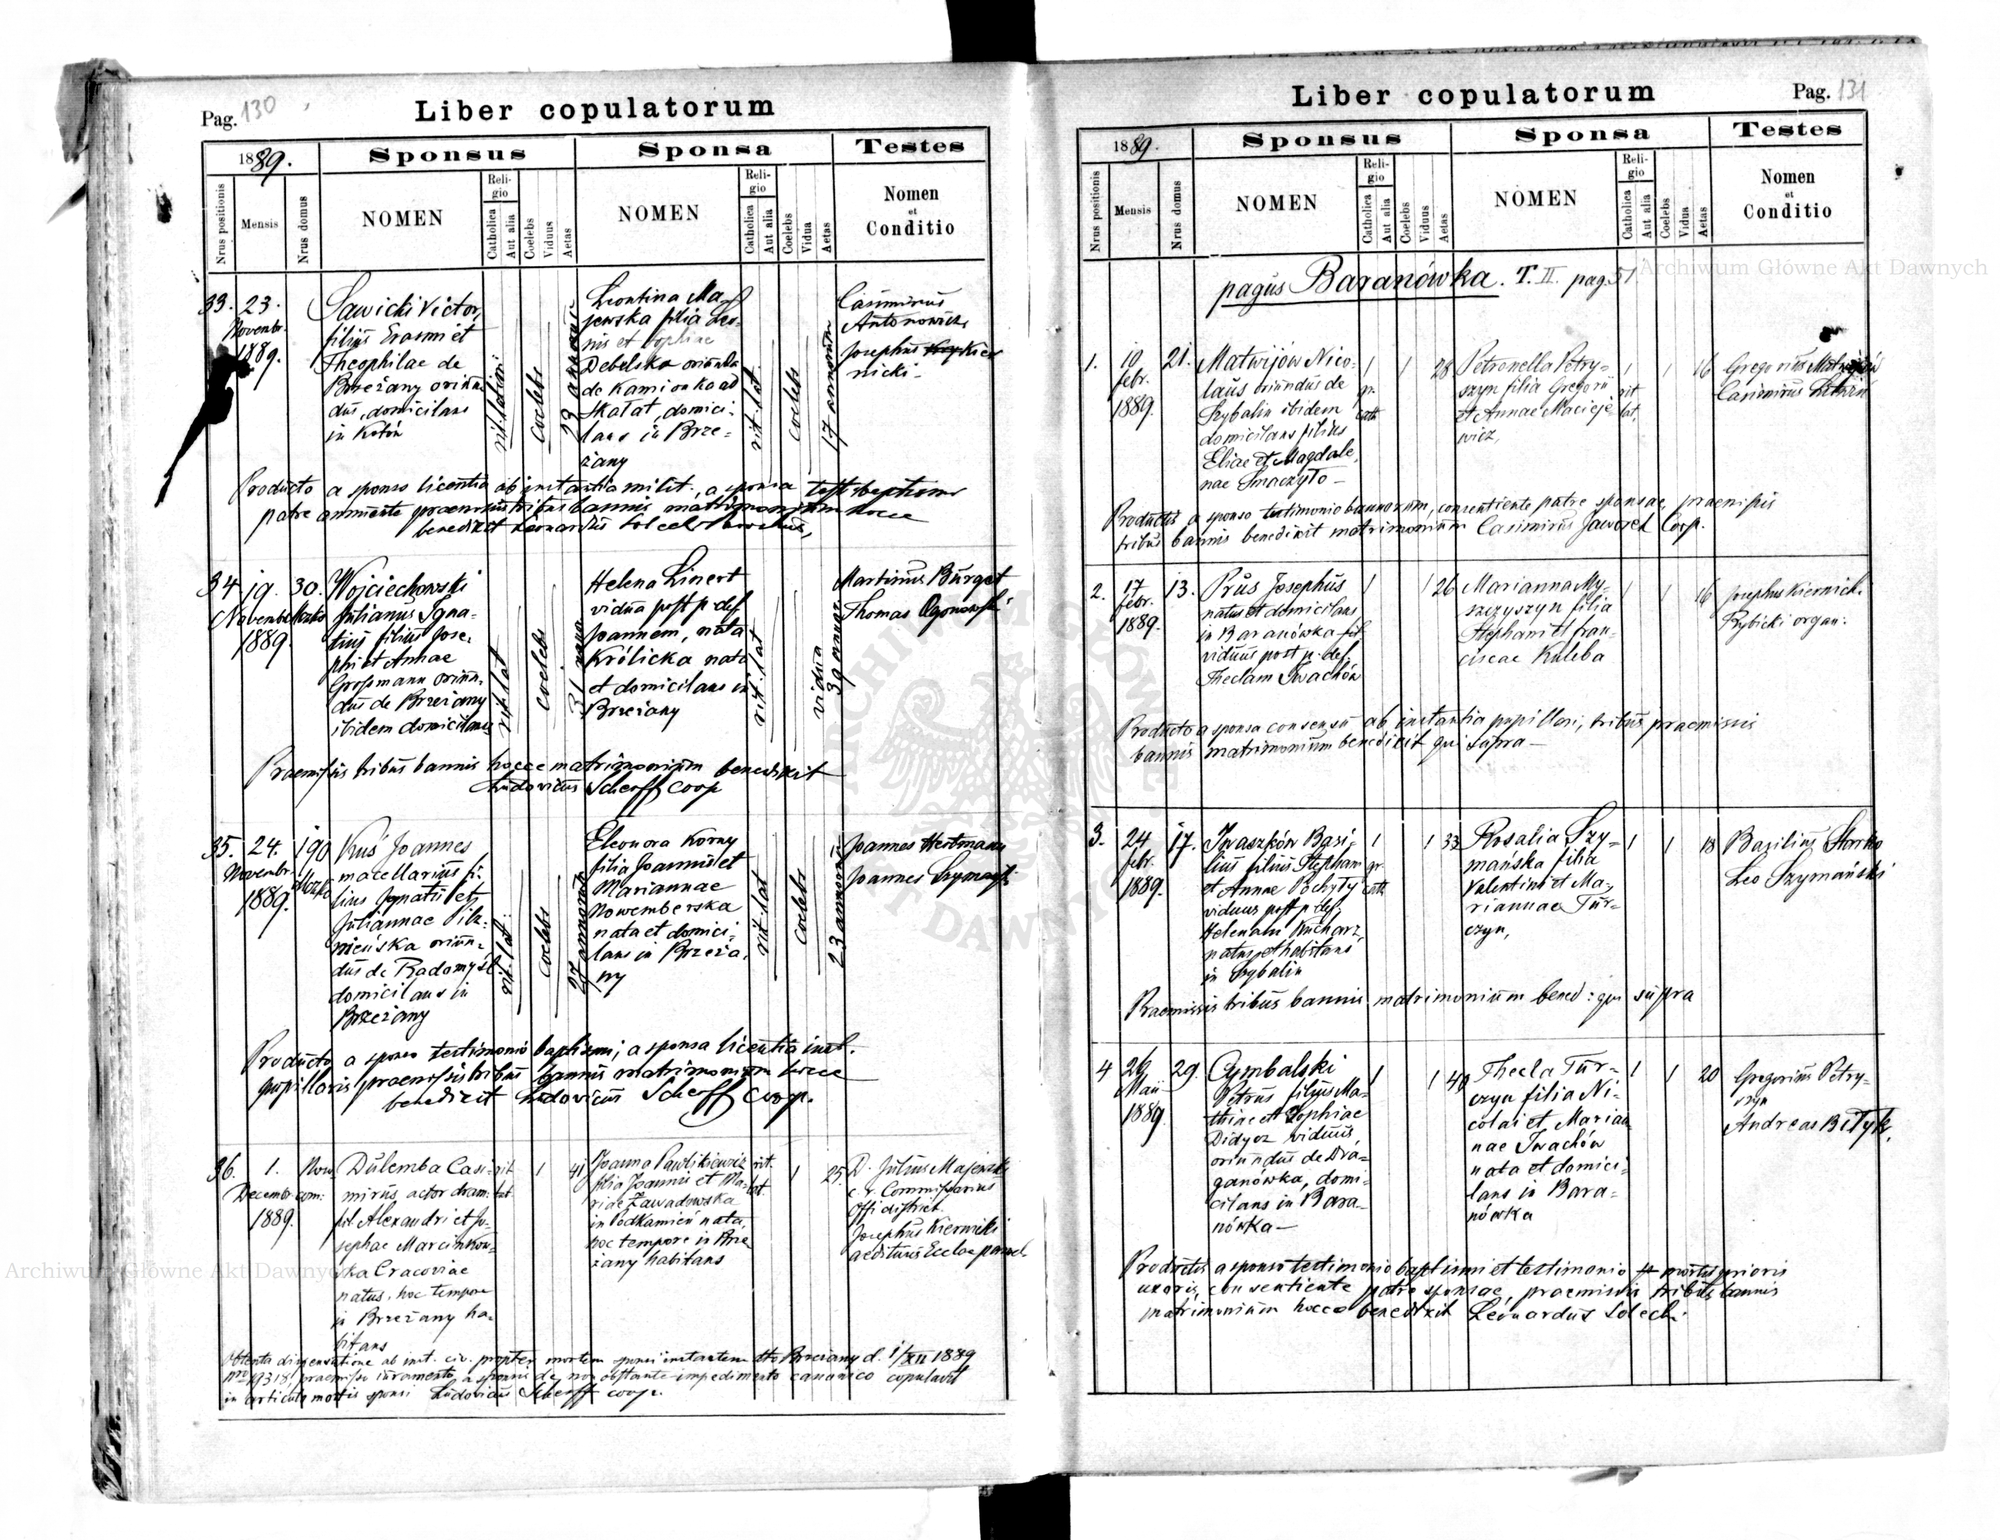 Pag. 130
Liber copulatorum
1889.
Sponsus
Sponsa
Testes
Nrus positionis
Mensis
Nrus domus
NOMEN
Religio
Catholica
Aut alia
Coelebs
Viduus
Aetas
NOMEN
Religio
Catholica
Aut alia
Coelebs
Vidua
Aetas
Nomen
et
Conditio
33. 23.
Novembr.
1889.
Sawicki Victor,
filius Erasmi et
Theophilae de
Brzeżany oriun
dus, domicilans
in Kotów
rit. latini
coelebs
23 annorum
Leontina Ma
jewska filia Leo-
nis et Sophiae
Debelska oriunda
de Kamionka ad
Skałat, domici-
lans in Brze-
żany
rit. lat.
coelebs
17 annorum
Casimirus
Antonowicz
Josephus Kier
nicki
Producto a sponso licentia ab instantia milit., a sponsa test. baptismi
patre annuente praemissis tribus bannis matrimonium hocce
benedixit Leonardus Solecki
34 19. 30.
November
1889.
Wojciechowski
Julianus Igna-
tius filius Jose-
phi et Annae
Grossmann oriun-
dus de Brzeżany
ibidem domicilans
rit. lat
coelebs
31
Helena Linert
vidua post p. def.
Joannem, nata
Królicka nata
et domicilans in
Brzeżany
rit. lat
vidua
39 annor.
Martinus Burget
Thomas Ogonowski
Praemissis tribus bannis hocce matrimonium benedixit
Ludovicus Scherff coop
35. 24. 190
Novembr.
1889.
Kuś Joannes
macellarius fi-
lius Ignatii et
Juliannae Pilz-
nieńska oriun-
dus de Radomyśl
domicilans in
Brzeżany
rit. lat.
coelebs
27 annorum
Eleonora Korny
filia Joannis et
Mariannae
Nowemberska
nata et domici-
lans in Brzeża-
ny
rit. lat
coelebs
23 annorum
Joannes Hertmann
Joannes
Producto a sponso testimonio baptismi, a sponsa licentia inst.
pupillaris praemissis tribus bannis matrimonium hocce
benedixit Ludovicus Scherff coop.
36. 1.
Decembr.
1889.
Dulemba Casi-
mirus, actor dram.
fil. Alexandri et Jo-
sephae Marcinkow-
ska Cracoviae
natus, hoc tempore
in Brzeżany ha-
bitans
rit.
lat.
1
41
Joanna Pawlikiewicz
filia Joannis et Ma-
riae Zawadowska
in Podkamień nata,
hoc tempore in Brze
żany habitans
rit.
lat.
1
25.
D. Julius Majewski
c. r. Commissarius
Offi district.
Josephus Kiernicki
aedituus Ecclae paroch.
Obtenta dispensatione ab inst. civ. propter mortem sponsi instantem dto Brzeżany d. 1/XII 1889
nro 19318, praemisso iuramento, a sponsis de non obstante impedimento canonico copulavit
in articulo mortis sponsi Ludovicus Scherff coop.
Liber copulatorum
Pag. 131
1889.
Sponsus
Sponsa
Testes
Nrus positionis
Mensis
Nrus domus
NOMEN
Religio
Catholica
Aut alia
Coelebs
Viduus
Aetas
NOMEN
Religio
Catholica
Aut alia
Coelebs
Vidua
Aetas
Nomen
et
Conditio
pagus Baranówka. T. II pag 51
1. 10 21.
febr.
1889.
Matwijów Nico-
laus oriundus de
Szybalin ibidem
domicilans filius
Eliae et Magdale-
nae Smaczyło
1
gr.
cath
1
28
Petronella Petry-
szyn filia Gregorii
et Annae Macieje-
wicz,
1
rit
lat.
1
16
Gregorius Matwijów
Casimirus
Productis a sponso testimonio bannorum, consentiente patre sponsae, praemissis
tribus bannis benedixit matrimonium Casimirus Jaworek Coop.
2. 17 13.
febr.
1889.
Prus Josephus
natus et domicilans
in Baranówka fil.
viduus post p. def.
Theclam Iwachów
1
1 26
Marianna My-
szczyszyn filia
Stephani et Fran-
ciscae Kuleba
1
1
16
Josephus Kiernicki
Rybicki organ:
Producto a sponsa consensu ab instantia pupillari, tribus praemissis
bannis matrimonium benedixit qui supra
3. 24 17.
febr.
1889.
Iwaszków Basi-
lius filius Stephani
et Annae Pochyły
viduus post p. def.
Helenam Kucharz
natus et habitans
in Szybalin
1
gr.
cath
1 33
Rosalia Szy-
mańska filia
Valentini et Ma-
riannae Tur-
czyn,
1
1
18
Basilius
Leo Szymański
Praemissis tribus bannis matrimonium bened: qui supra
4 26 29.
Maii
1889.
Cymbalski
Petrus filius Ma-
thiae et Sophiae
Didycz viduus
oriundus de Dra-
ganówka, domi-
cilans in Bara-
nówka
1
1 40
Thecla Tur-
czyn filia Ni-
colai et Marian-
nae Iwachów
nata et domici-
lans in Bara-
nówka
1
1
20
Gregorius Petry-
szyn
Andreas Bityk.
Productis a sponso testimonio baptismi et testimonio mortis prioris
uxoris, consentiente patre sponsae, praemissis tribus bannis
matrimonium hocce benedixit Leonardus Solecki.
Archiwum Główne Akt Dawnych
Archiwum Główne Akt Dawnych
ARCHIWUM GŁÓWNE AKT DAWNYCH